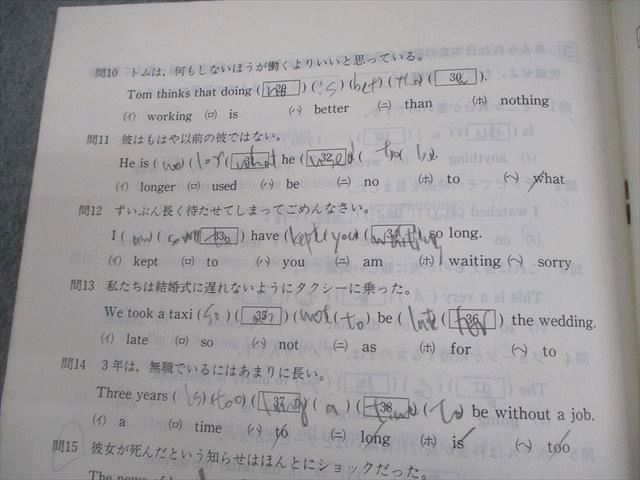 問10 トムは，何もしないほうが働くよりいいと思っている。
Tom thinks that doing ( 29 ) (is) (bet) (tha) ( 30 ).
(イ) working (ロ) is (ハ) better (ニ) than (ホ) nothing
問11 彼はもはや以前の彼ではない。
He is (no) (lon) ( 31 what ) he ( 32 used ) ( to ) ( be ).
(イ) longer (ロ) used (ハ) be (ニ) no (ホ) to (ヘ) what
問12 ずいぶん長く待たせてしまってごめんなさい。
I (am) ( 33 ) have (kept) (you) ( 34 waiting ) so long.
(イ) kept (ロ) to (ハ) you (ニ) am (ホ) waiting (ヘ) sorry
問13 私たちは結婚式に遅れないようにタクシーに乗った。
We took a taxi (so) ( 35 as ) (not) (to) be (late) ( 36 for ) the wedding.
(イ) late (ロ) so (ハ) not (ニ) as (ホ) for (ヘ) to
問14 3年は，無職でいるにはあまりに長い。
Three years (is) (too) ( 37 long ) ( a ) ( 38 time ) (to) be without a job.
(イ) a (ロ) time (ハ) to (ニ) long (ホ) is (ヘ) too
問15 彼女が死んだという知らせはほんとにショックだった。
The news of